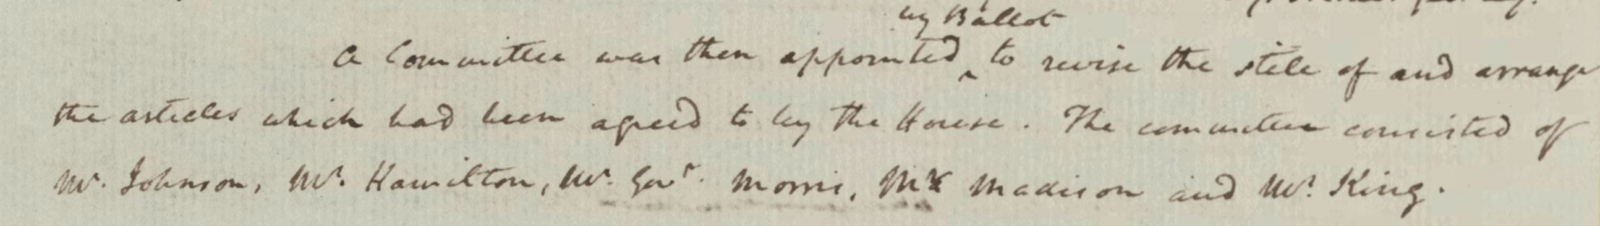 by Ballot
A Committee was then appointed ^ to revise the stile of and arrange
the articles which had been agreed to by the House. The committee consisted of
Mr. Johnson, Mr. Hamilton, Mr. Govr. Morris, Mr Madison and Mr. King.